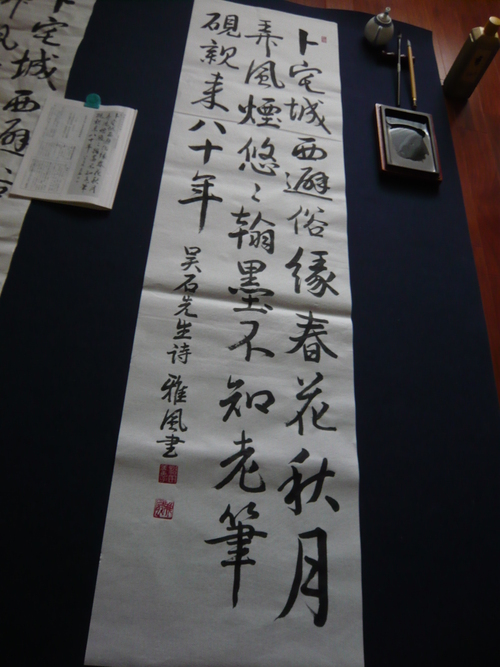 卜宅城西避俗缘春花秋月
弄风煙悠〻翰墨不知老筆
硯親来八十年
吴石先生诗 雅风書
宅城西避